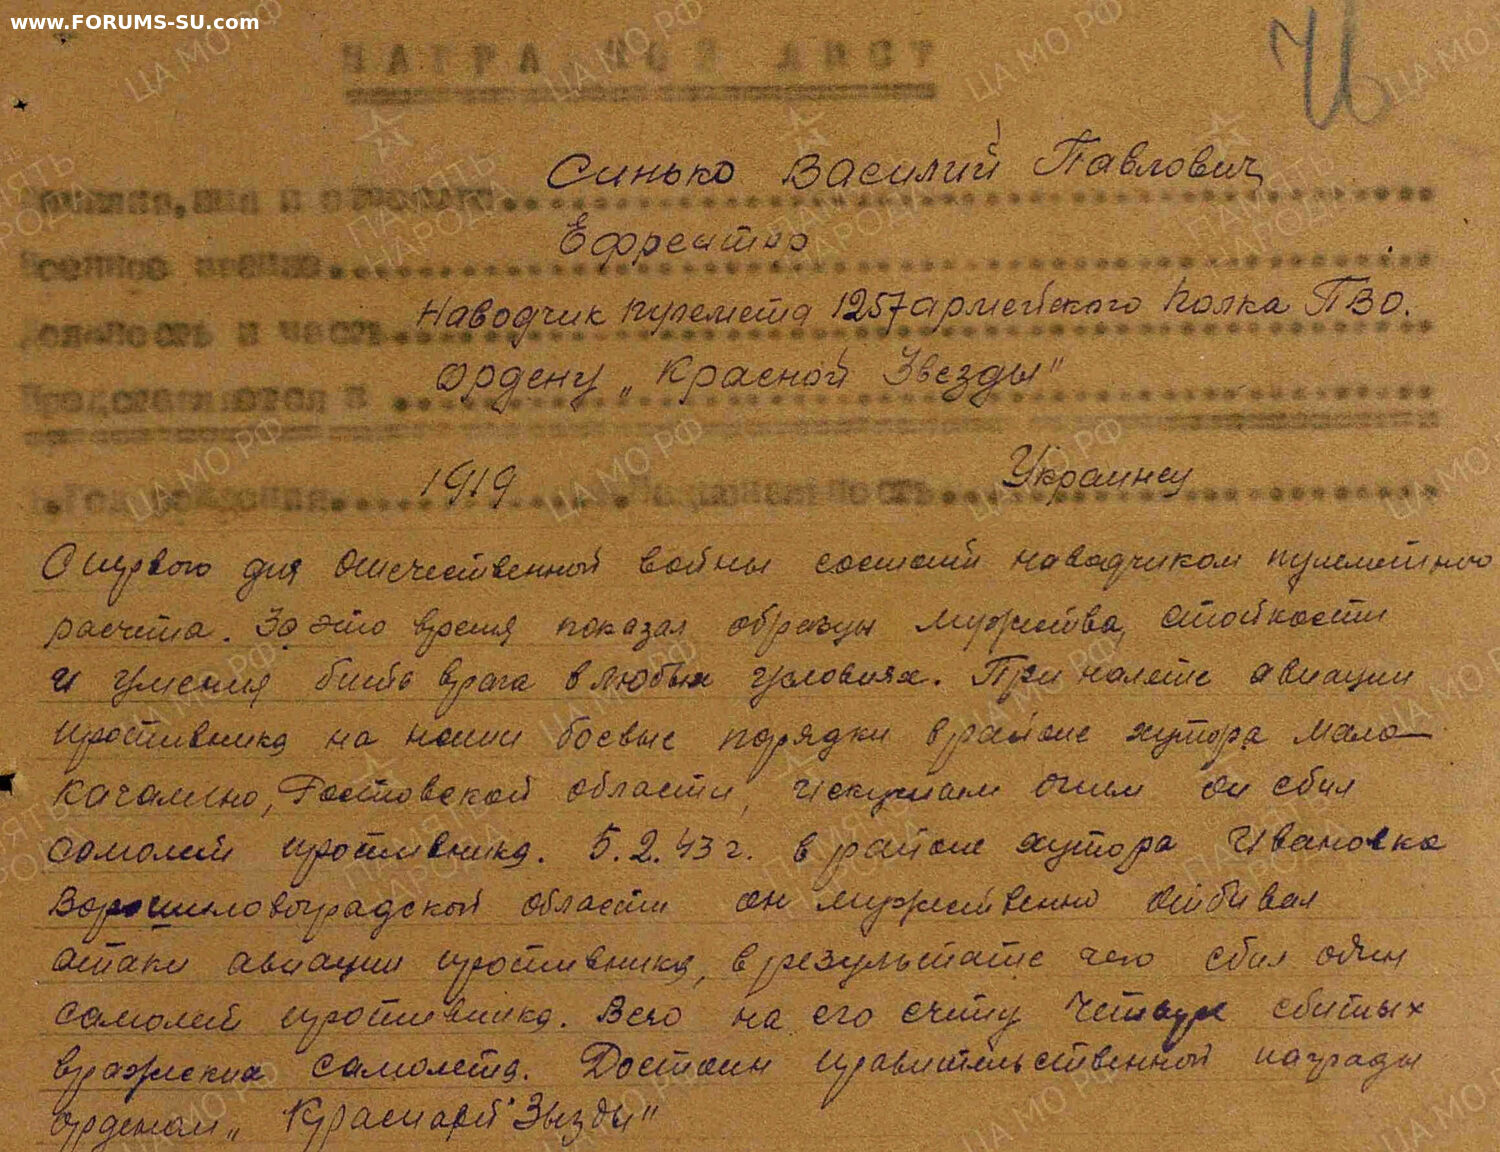 www.FORUMS-SU.com
НАГРАДНОЙ ЛИСТ
Фамилия, имя и отчество Синько Василий Павлович
Военное звание Ефрейтор
Должность и часть Наводчик пулемета 1257 армейского полка ПВО.
Представляется к Ордену „Красной Звезды"
1. Год рождения 1919 Национальность Украинец
С первого дня Отечественной войны состоит наводчиком пулеметного
расчета. За это время показал образцы мужества, стойкости
и умения бить врага в любых условиях. При налете авиации
противника на наши боевые порядки в районе хутора Мало-
Качалино, Ростовской области, искусным огнем он сбил
самолет противника. 5.2.43 г. в районе хутора Ивановка
Ворошиловоградской области он мужественно отбивал
атаки авиации противника, в результате чего сбил один
самолет противника. Всего на его счету четыре сбитых
вражеских самолета. Достоин правительственной награды
орденом „Красной Звезды"
ЦА МО РФ
ПАМЯТЬ
НАРОДА